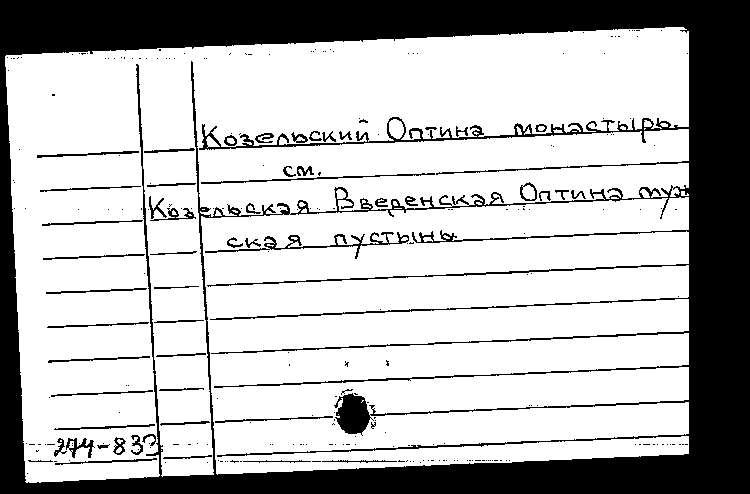 Козельский Оптина монастырь.
см.
Козельская Введенская Оптина муж
ская пустынь
274-833